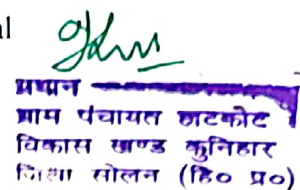 al
प्रधान
ग्राम पंचायत हाटकोट
विकास खण्ड कुनिहार
जिला सोलन (हि० प्र०)